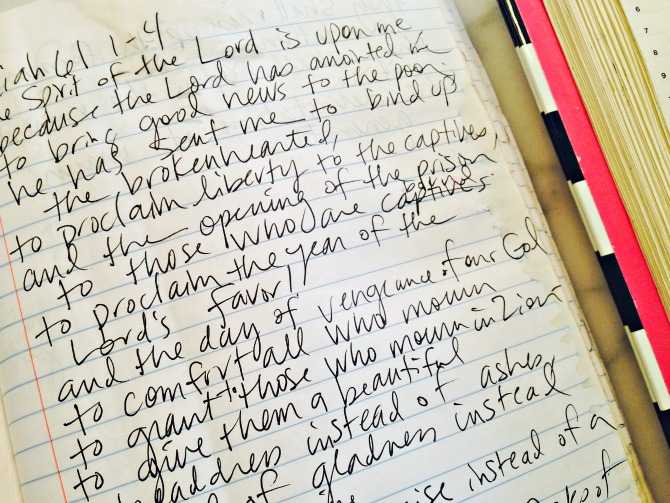 iah 61 1-4
e Spirit of the Lord is upon me
because the Lord has anointed me
to bring good news to the poor,
he has sent me to bind up
the brokenhearted,
to proclaim liberty to the captives,
and the opening of the prison
to those who are
to proclaim the year of the
Lord's favor,
and the day of vengeance of our God
to comfort all who mourn
to grant those who mourn in Zion
to give them a beautiful
headdress instead of ashes,
of gladness instead
ise instead of a
of
6
7
8
9